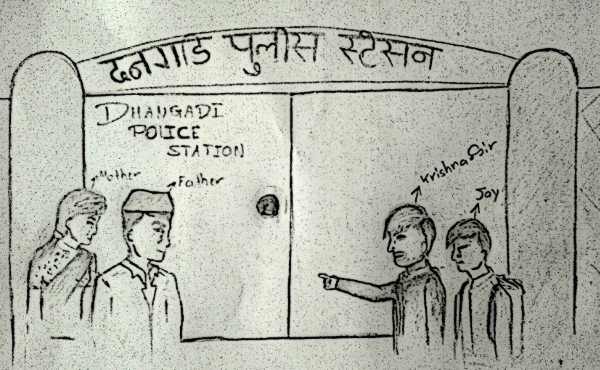 दनगाडे पुलीस स्टेसन
DHANGADI
POLICE
STATION
Mother
Father
Krishna Sir
Joy